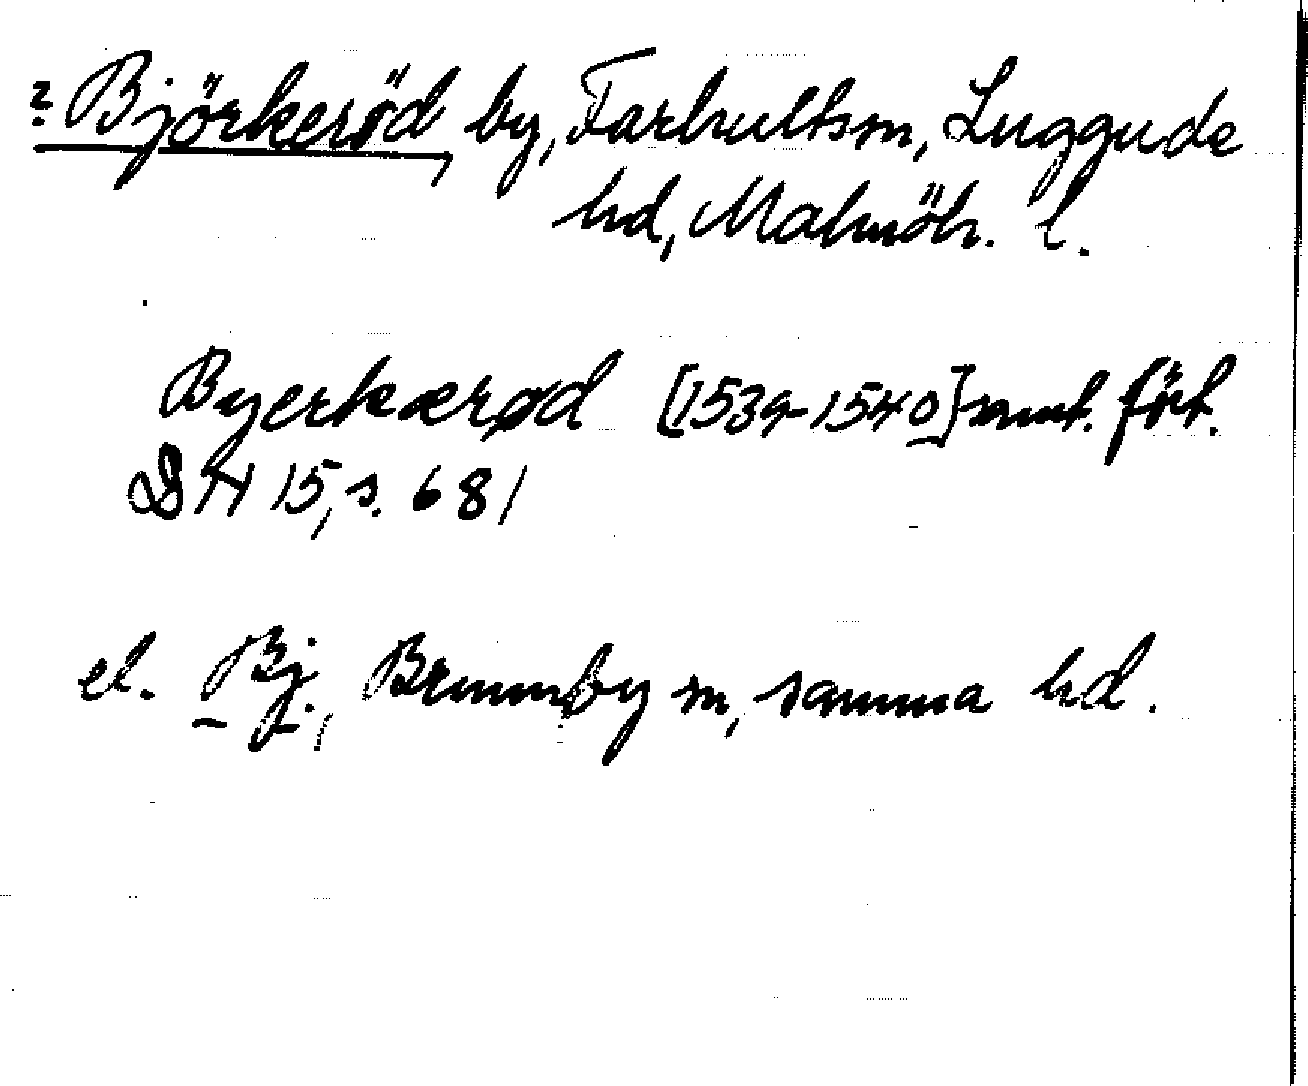 ? Björkeröd, by, Farhultsn, Luggude
hd, Malmöh. l.
Byerkærød [1539-1540] samt. fört.
DN 15, s. 681
el. Bj., Brunnby sn, samma hd.